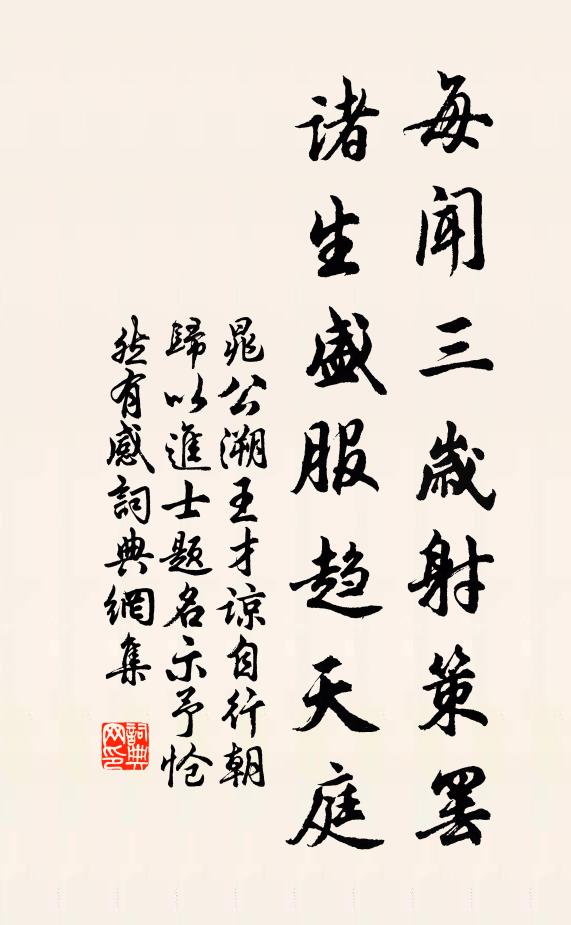 每闻三歳射策罢
诸生盛服趋天庭
晁公溯王才谅自行朝
歸以進士题名示予怆
然有感詞典網集
詞典网印